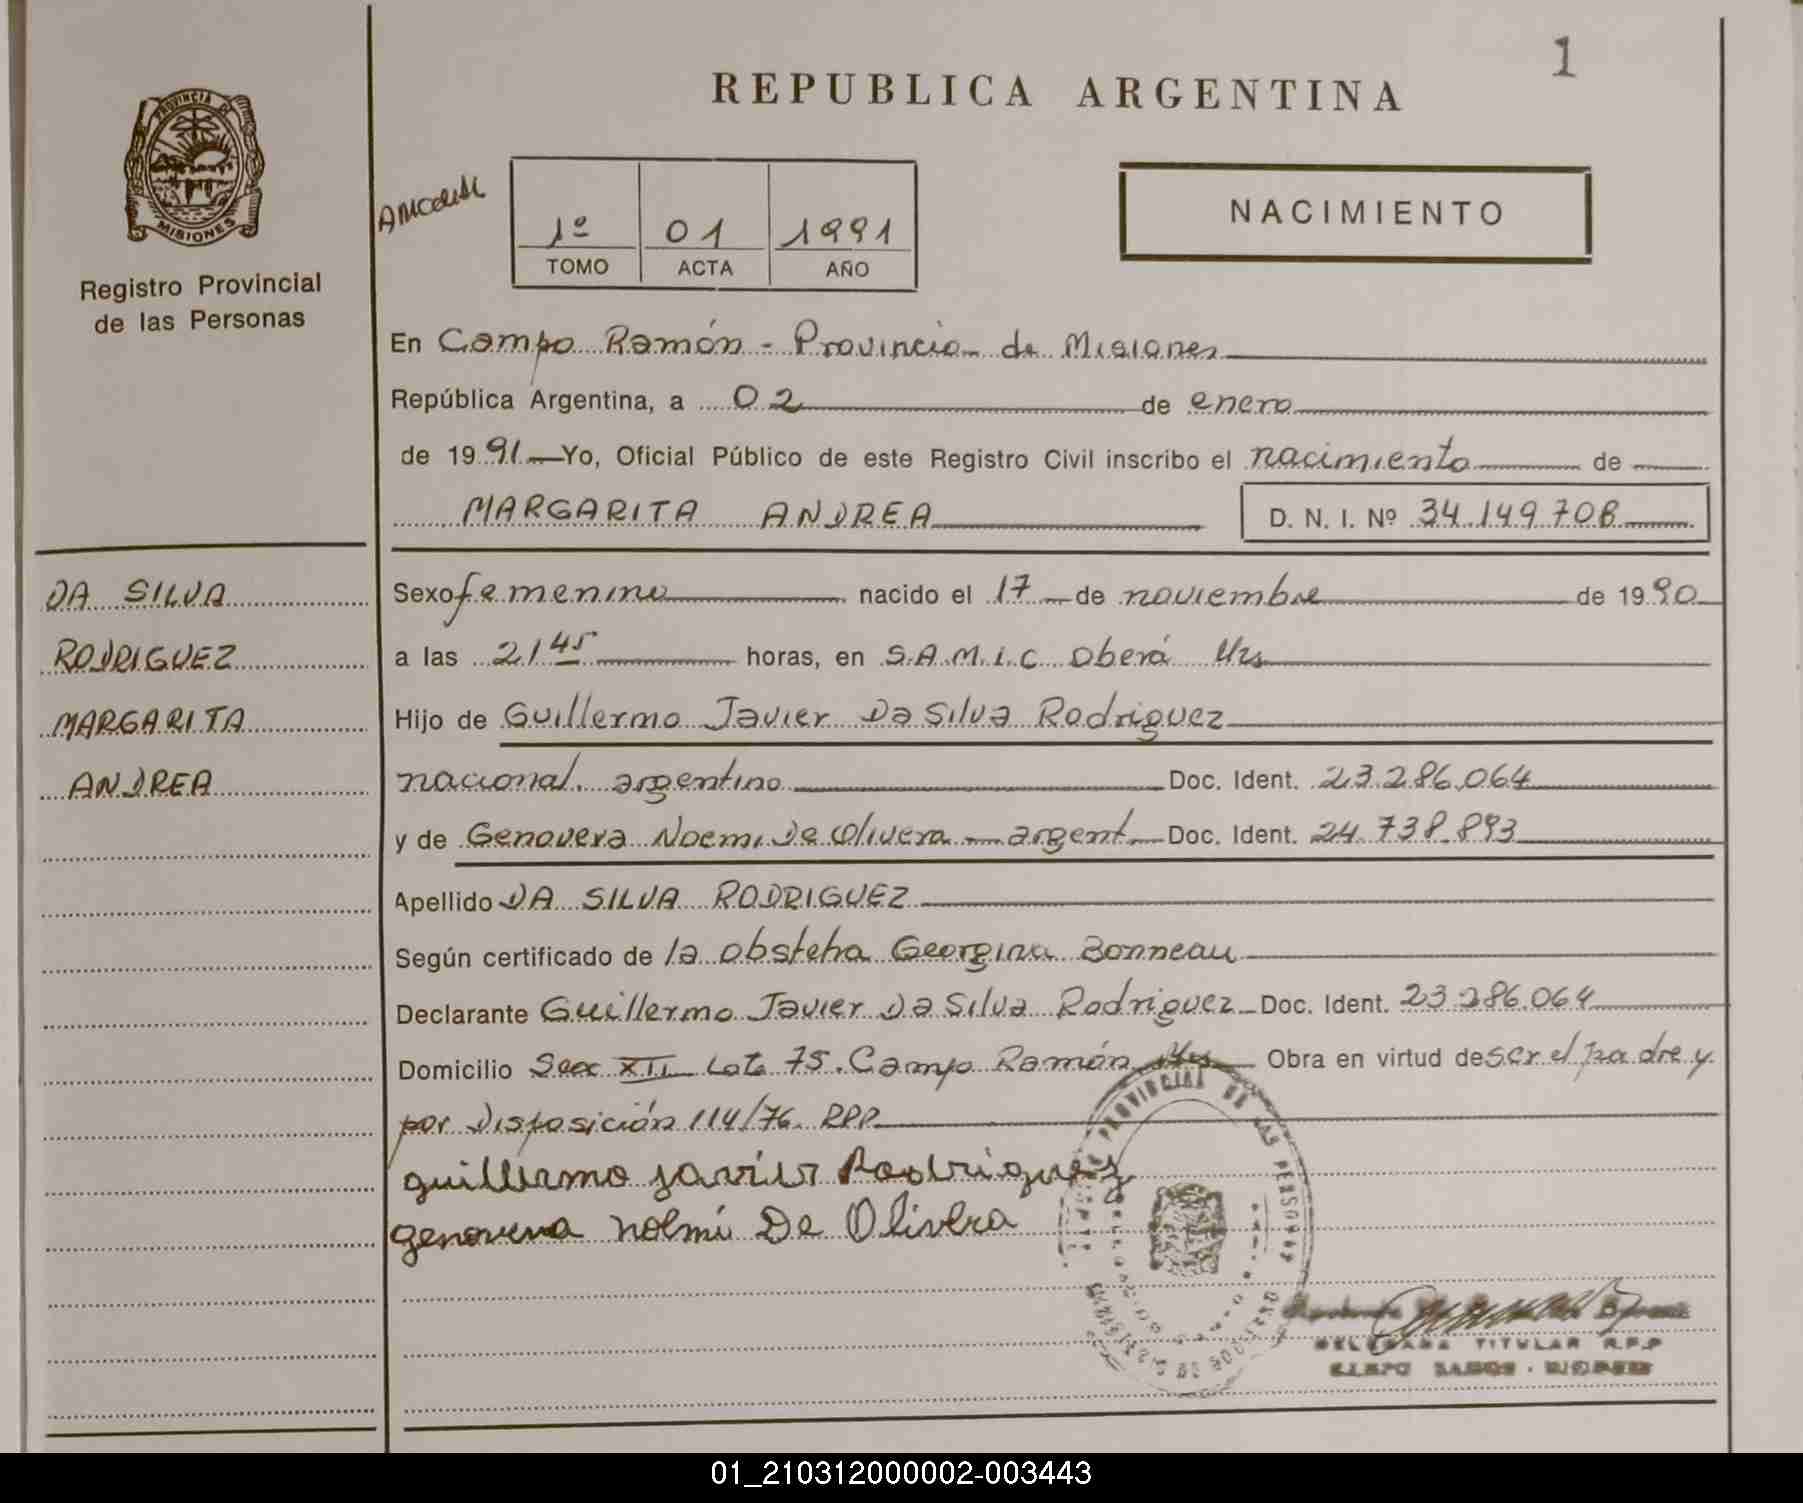 1
REPUBLICA ARGENTINA
PROVINCIA DE
MISIONES
Registro Provincial
de las Personas
1º 01 1991
TOMO ACTA AÑO
NACIMIENTO
En Campo Ramón - Provincia de Misiones
República Argentina, a 02 de enero
de 1991 Yo, Oficial Público de este Registro Civil inscribo el nacimiento de
MARGARITA ANDREA D. N. I. Nº 34.149.708
DA SILVA
RODRIGUEZ
MARGARITA
ANDREA
Sexo femenino nacido el 17 de noviembre de 1990
a las 21 45 horas, en S.A.M.I.C Oberá Mis
Hijo de Guillermo Javier Da Silva Rodriguez
nacional. argentino Doc. Ident. 23.286.064
y de Genoveva Noemi De Olivera - argent. Doc. Ident. 24.738.893
Apellido DA SILVA RODRIGUEZ
Según certificado de la obstetra Georgina Bonneau
Declarante Guillermo Javier Da Silva Rodriguez Doc. Ident. 23.286.064
Domicilio Secc XII Lote 75. Campo Ramón Mis Obra en virtud de ser el padre y
por Disposición 114/76. RPP
guillermo javier Rodrigues
genoveva noemi De Olivera
PROVINCIAL DE LAS PERSONAS
DELEGADA TITULAR R.P.P
CAMPO RAMON - MISIONES
01_210312000002-003443